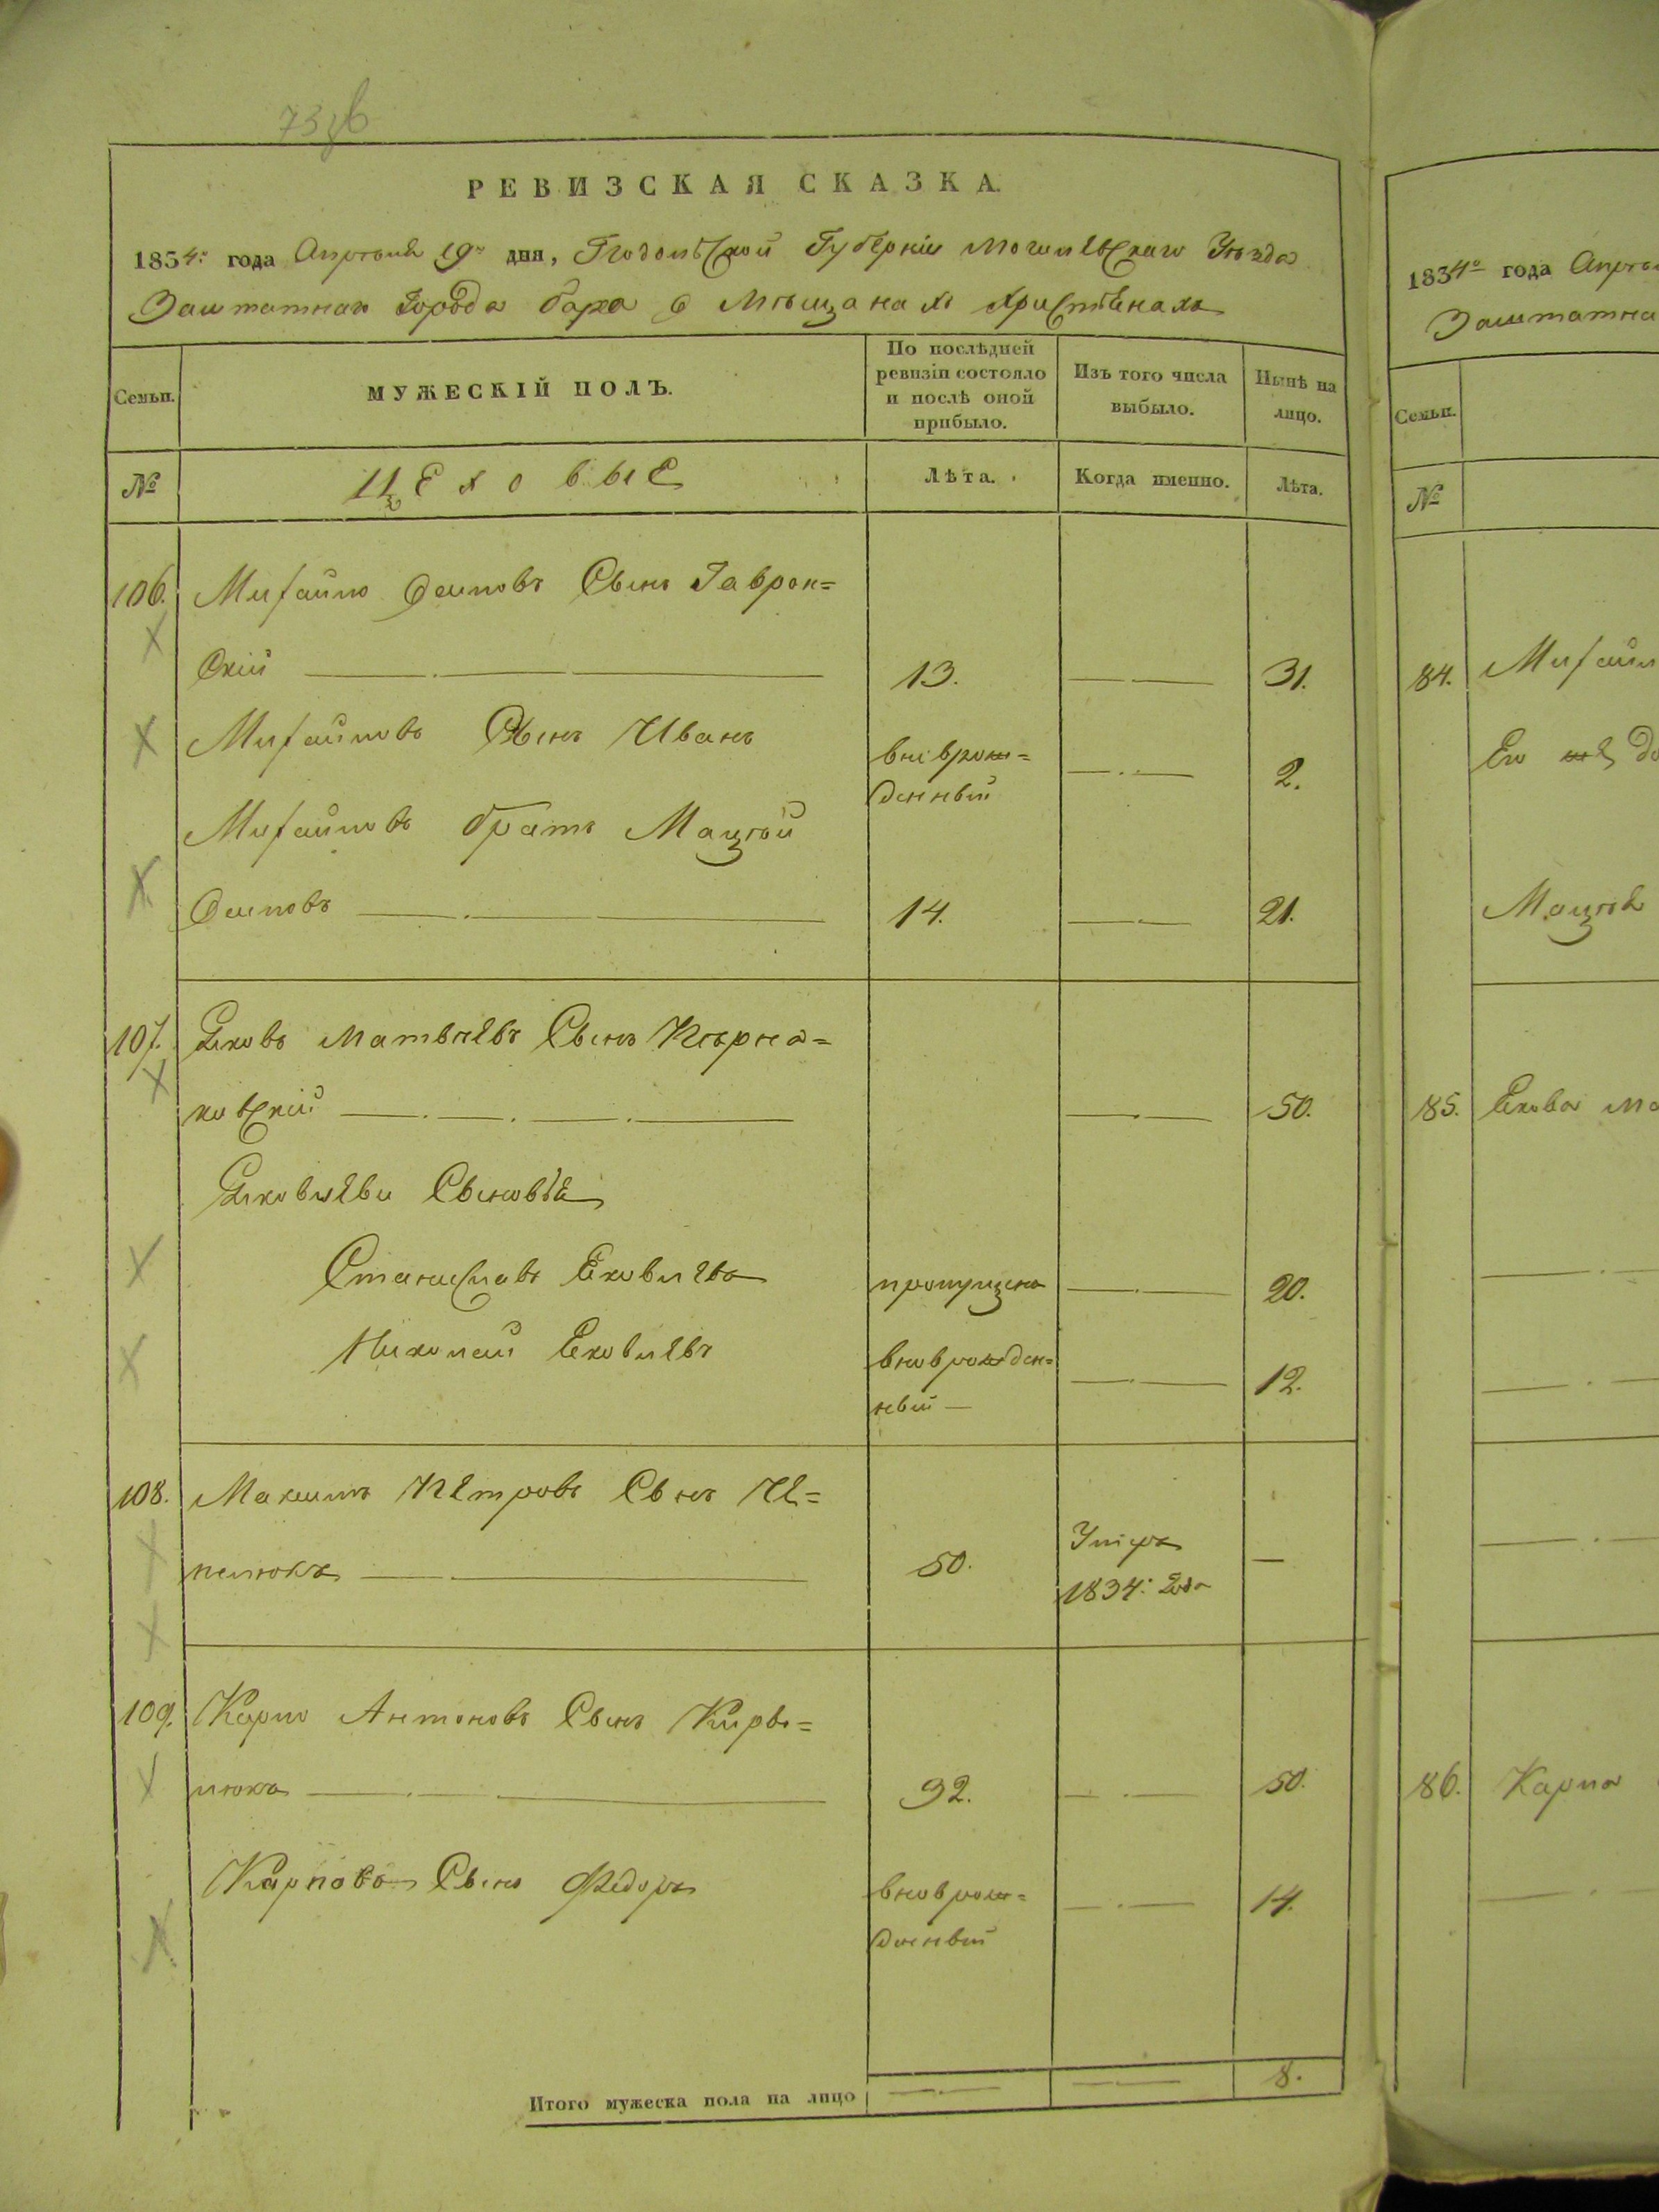 РЕВИЗСКАЯ СКАЗКА.
1834: года Апрѣля 19го дня, Подольской Губерніи Могилевскаго Уѣзда
Заштатнаго Города Бара о Мѣщанахъ Христіянахъ
Семьи.
МУЖЕСКІЙ ПОЛЪ.
По послѣдней ревизіи состояло и послѣ оной прибыло.
Изъ того числа выбыло.
Нынѣ на лицо.
№
Цеховые
Лѣта.
Когда именно.
Лѣта.
106. Михайло Осиповъ Сынъ Гаврон=
скій 13. 31.
Михайловъ Сынъ Иванъ новорож=
денный 2.
Михайловъ братъ Мацѣй
Осиповъ 14. 21.
107. Яковъ Матвѣевъ Сынъ
ковскій 50.
Яковлевы Сыновья
Станиславъ Яковлевъ пропущенъ 20.
Николай Яковлевъ новорожден=
ный 12.
108. Максимъ Петровъ Сынъ
50. Умеръ
1834: года
109. Карпо Антоновъ Сынъ Киры=
люкъ 32. 50.
Карповъ Сынъ Федоръ новорож=
денный 14.
Итого мужеска пола на лицо 8.
1834о года
Семьи.
№
84.
Его же
Мацѣя
85. Якова
86. Карпа